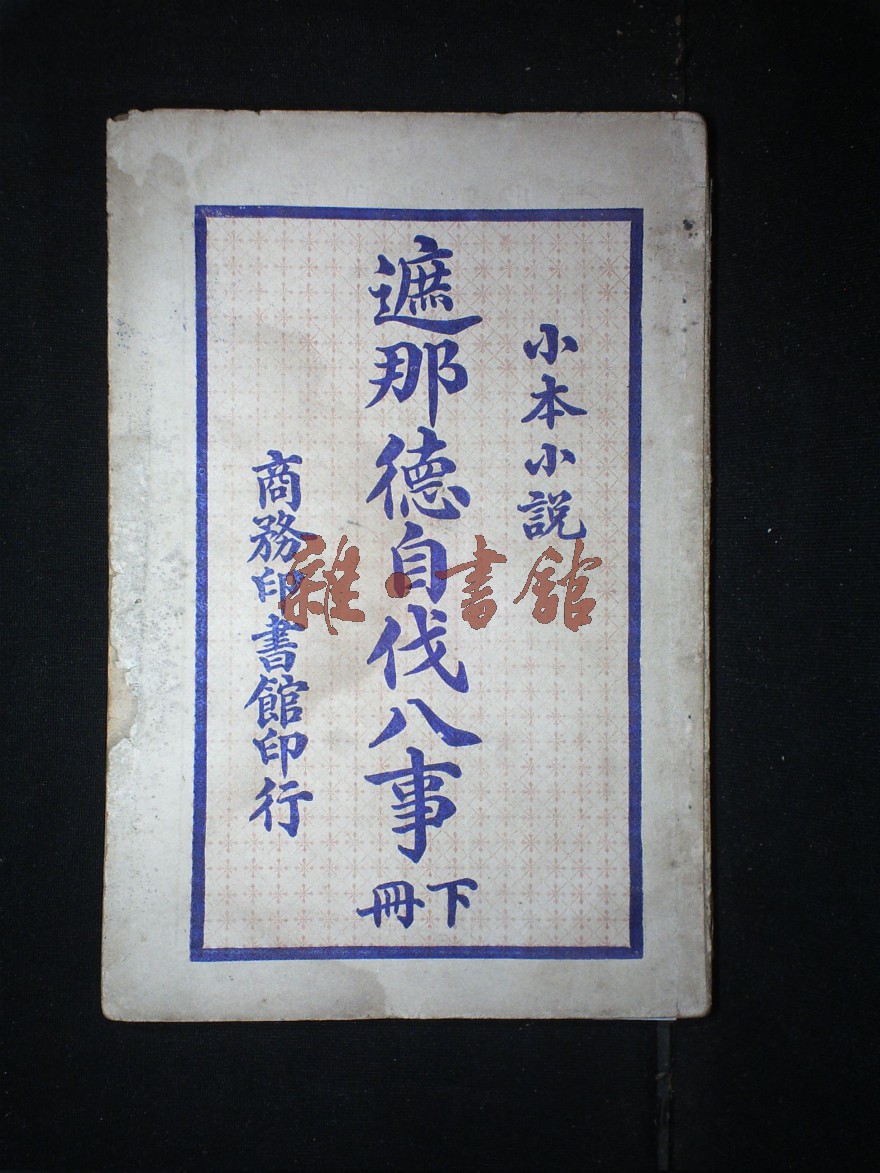 小本小説
遮那德自伐八事
下冊
商務印書館印行
雜·書館